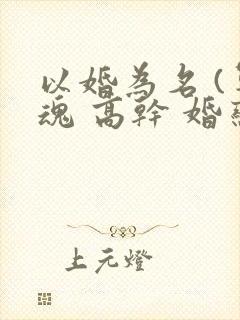 以婚為名(
魂 高幹 婚
上元燈